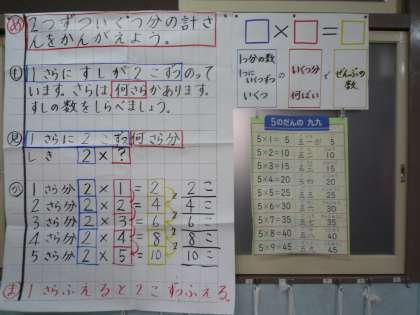 め 2つずついくつ分の計さ
んをかんがえよう。
も 1さらにすしが2こずつのって
います。さらは何さらかあります。
すしの数をしらべましょう。
見 1さらに2こずつ何さら分
しき 2×?
1さら分 2×1=2 2こ
2さら分 2×2=4 4こ
3さら分 2×3=6 6こ
4さら分 2×4=8 8こ
5さら分 2×5=10 10こ
ま 1さらふえると2こずつふえる。
□×□=□
1つ分の数
1つにいくつずつ
いくつ
の
いくつ分
何ばい
で
ぜんぶの数
5のだんの 九九
5×1=5
5×2=10
5×3=15
5×4=20
5×5=25
5×6=30
5×7=35
5×8=40
5×9=45